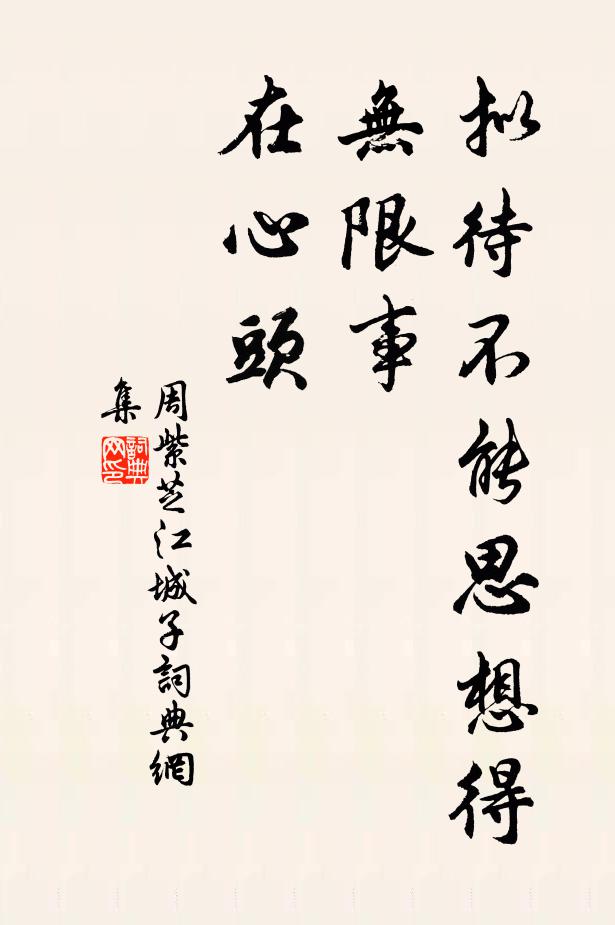 拟待不能思想得
無限事
在心頭
周紫芝江城子詞典網
集
詞典
网印